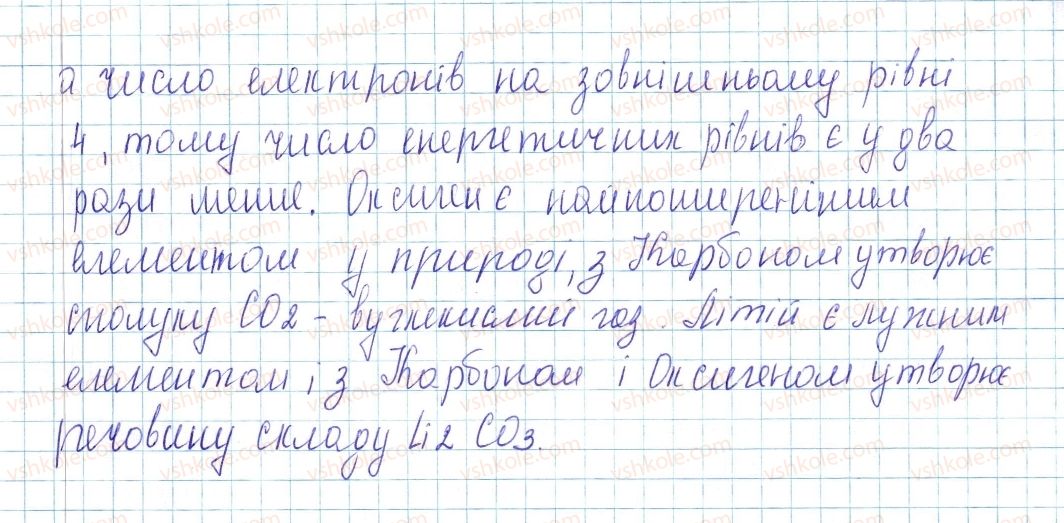 а число електронів на зовнішньому рівні
4, тому число енергетичних рівнів є у два
рази менше. Оксиген є найпоширенішим
елементом у природі, з Карбоном утворює
сполуку CO2 – вуглекислий газ. Літій є лужним
елементом і з Карбоном і Оксигеном утворює
речовину складу Li2CO3.